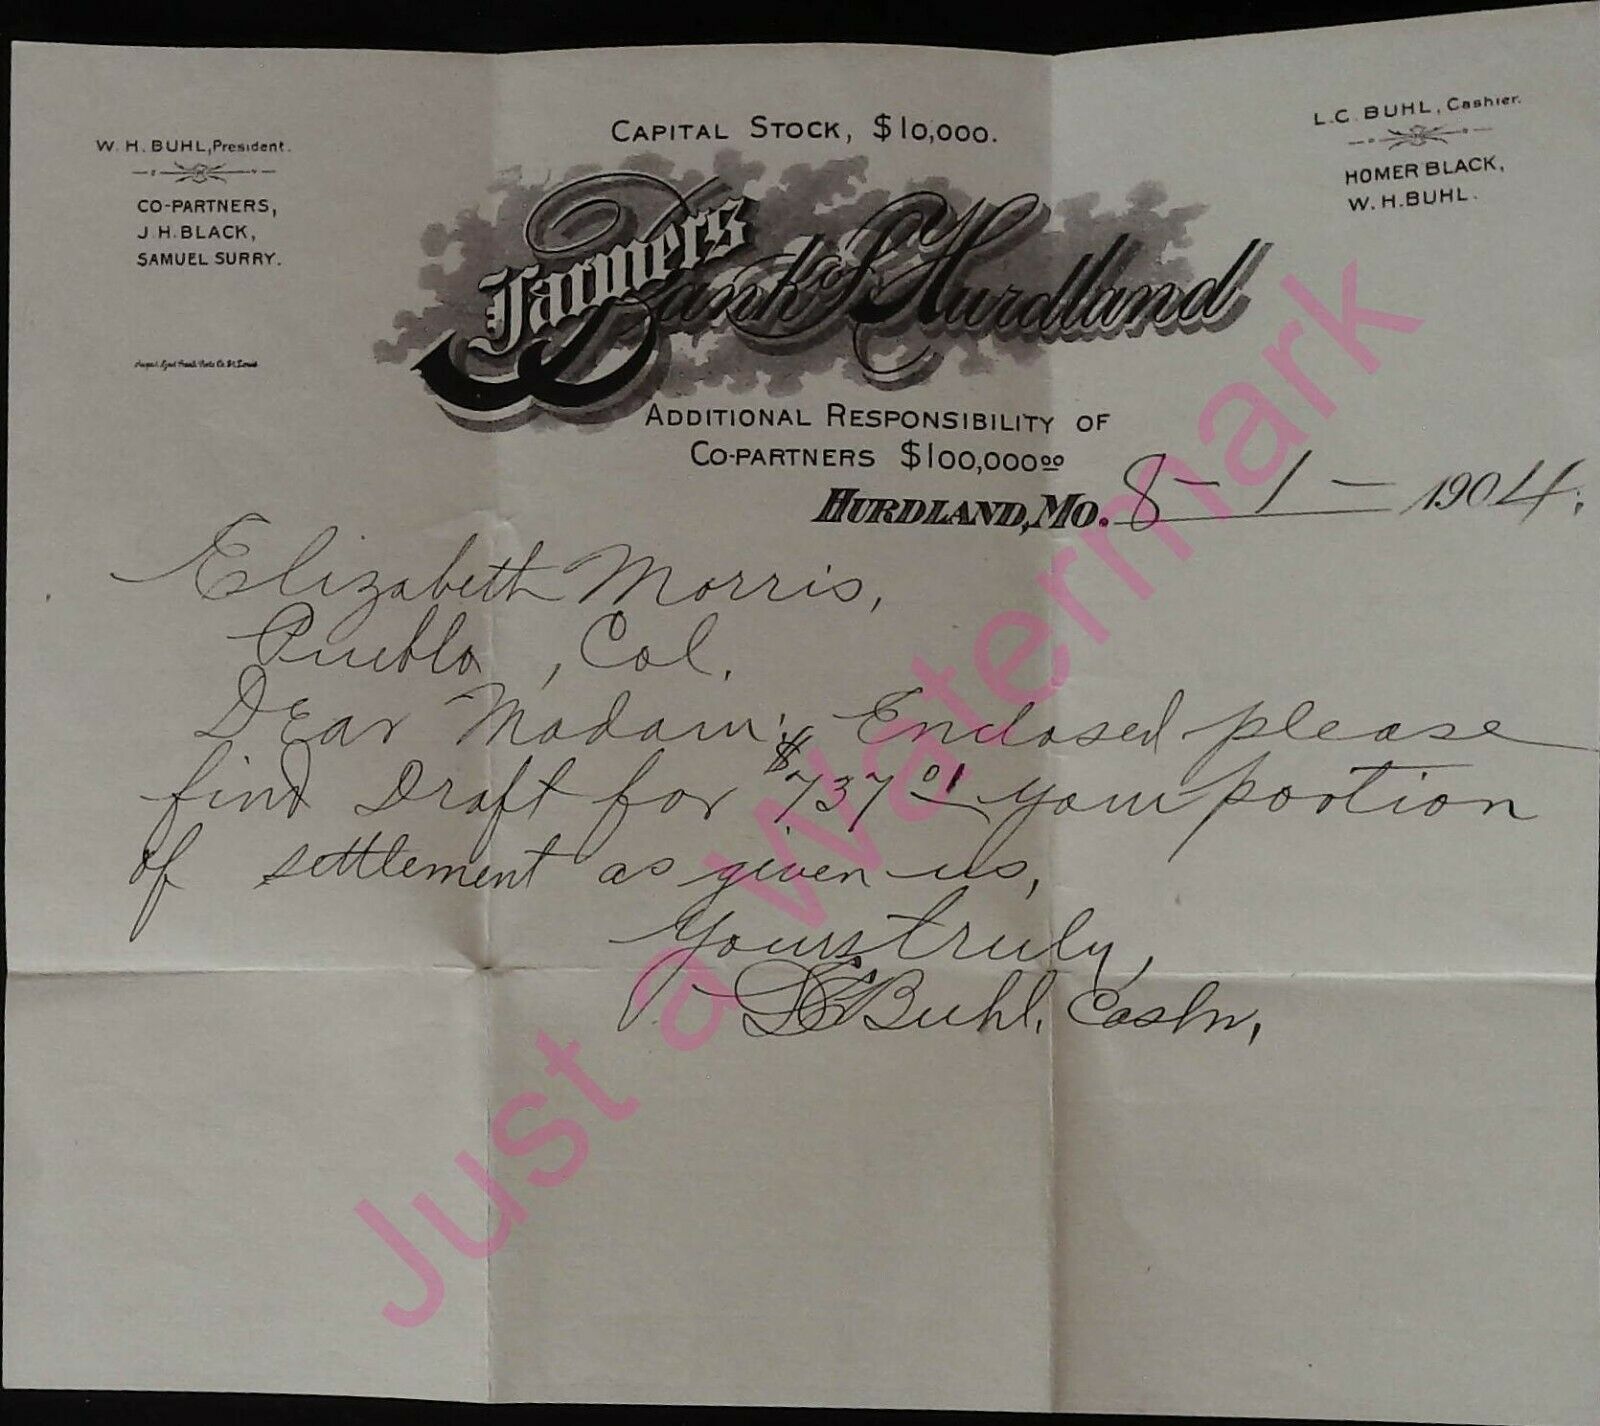 CAPITAL STOCK, $10,000.
W. H. BUHL, President.
CO-PARTNERS,
J. H. BLACK,
SAMUEL SURRY.
L. C. BUHL, Cashier.
HOMER BLACK,
W. H. BUHL.
Farmers Bank of Hurdland
St. Louis
ADDITIONAL RESPONSIBILITY OF
CO-PARTNERS $100,000.00
HURDLAND, MO. 8-1-1904.
Elizabeth Morris,
Pueblo, Col.
Dear Madam; Enclosed please
find Draft for $737 01 your portion
of settlement as given us,
Yours truly,
L C Buhl, Cashr,
Just a Watermark